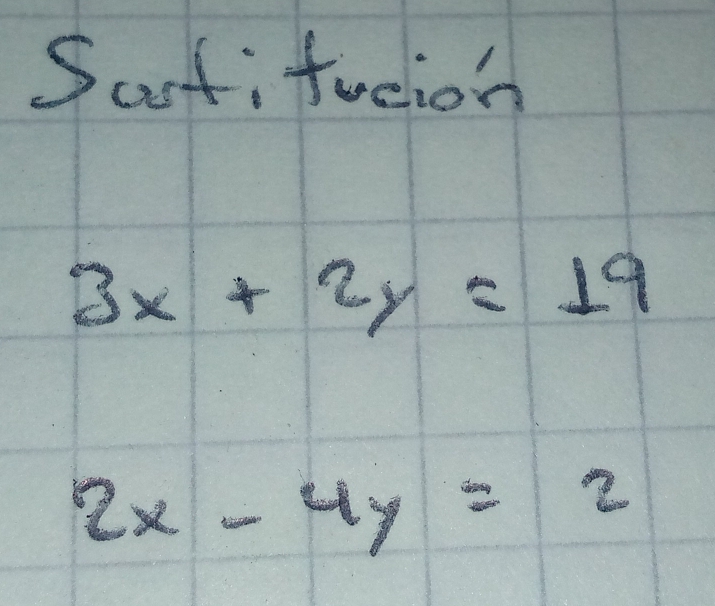 Sustitución
3x + 2y = 19
2x - 4y = 2